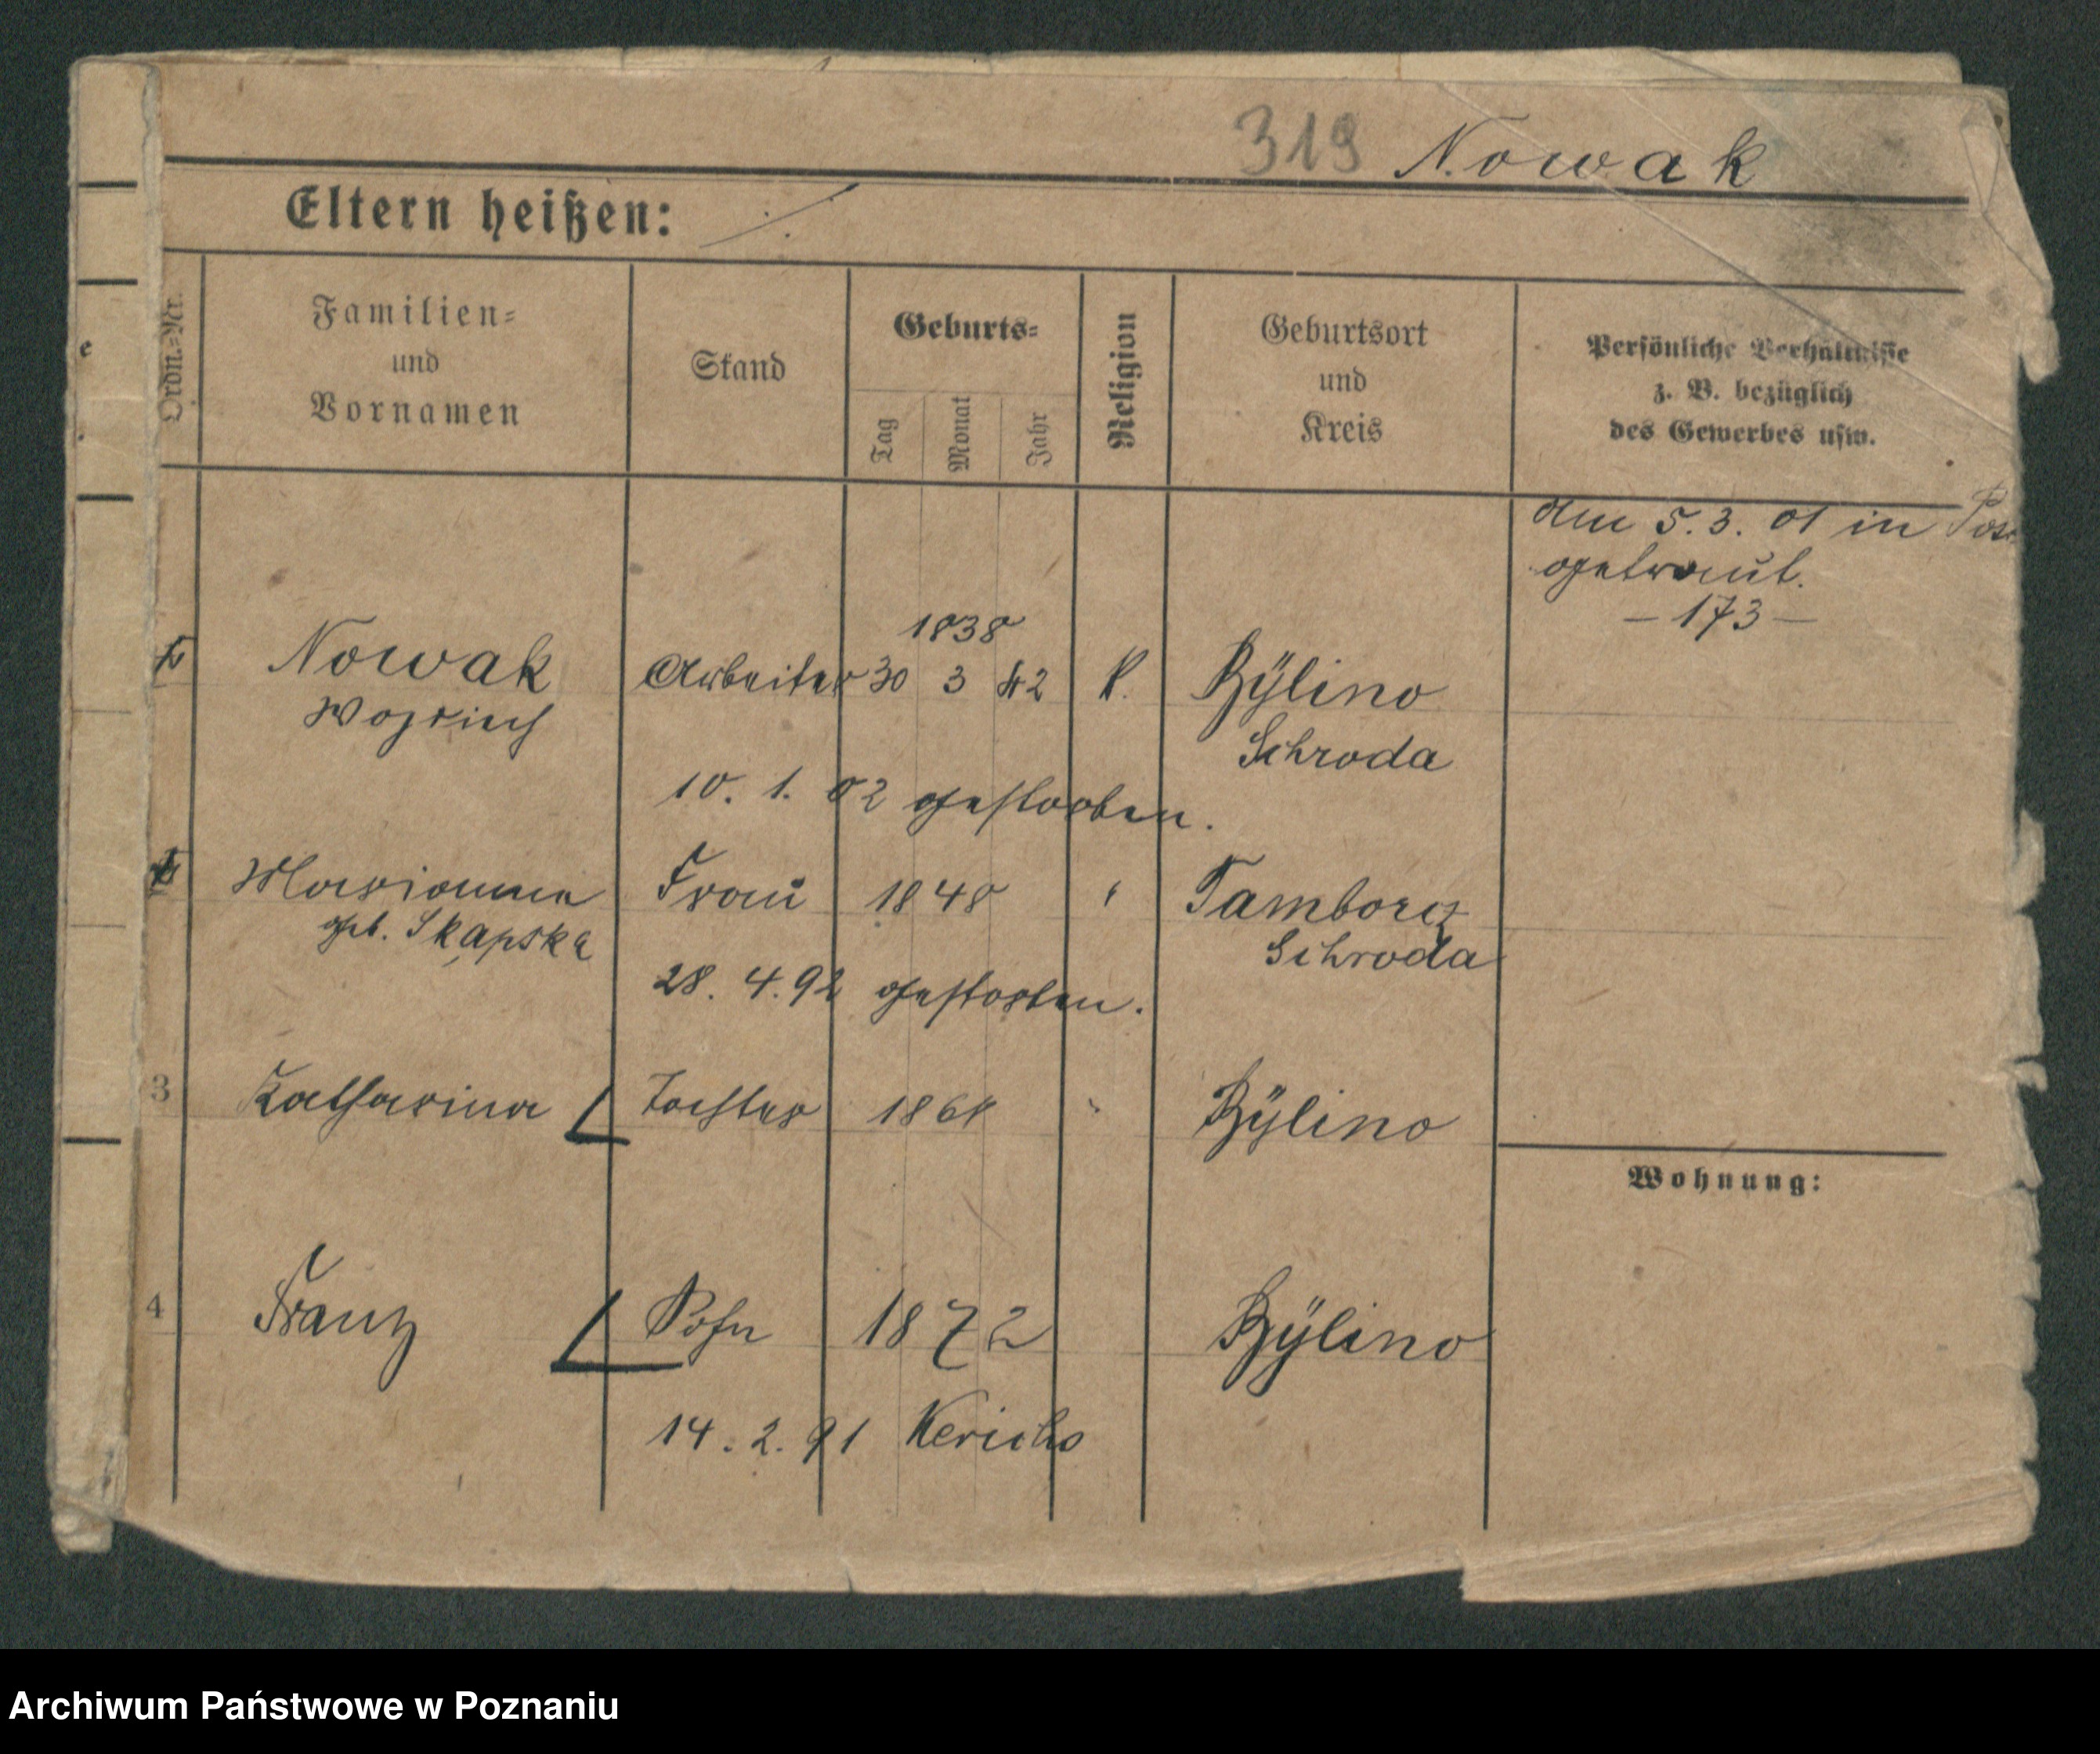 319 Nowak
Eltern heißen: ./.
Ordn.=Nr.
Familien=
und
Vornamen
Stand
Geburts=
Tag
Monat
Jahr
Religion
Geburtsort
und
Kreis
Persönliche Verhältnisse
z. B. bezüglich
des Gewerbes usw.
am 5.3. 01 in Pos
getraut.
– 173 –
1838
Nowak Arbeiter 30 3 42 k. Bÿlino
Woyciech Schroda
10. 1. 02 gestorben.
Marianna Frau 1848 " Tamborcz
geb. Skąpska Schroda
28. 4. 92 gestorben.
3 Katharina Tochter 1868 " Bÿlino
Wohnung:
4 Franz Sohn 1872 Bÿlino
14. 2. 91
e
Archiwum Państwowe w Poznaniu